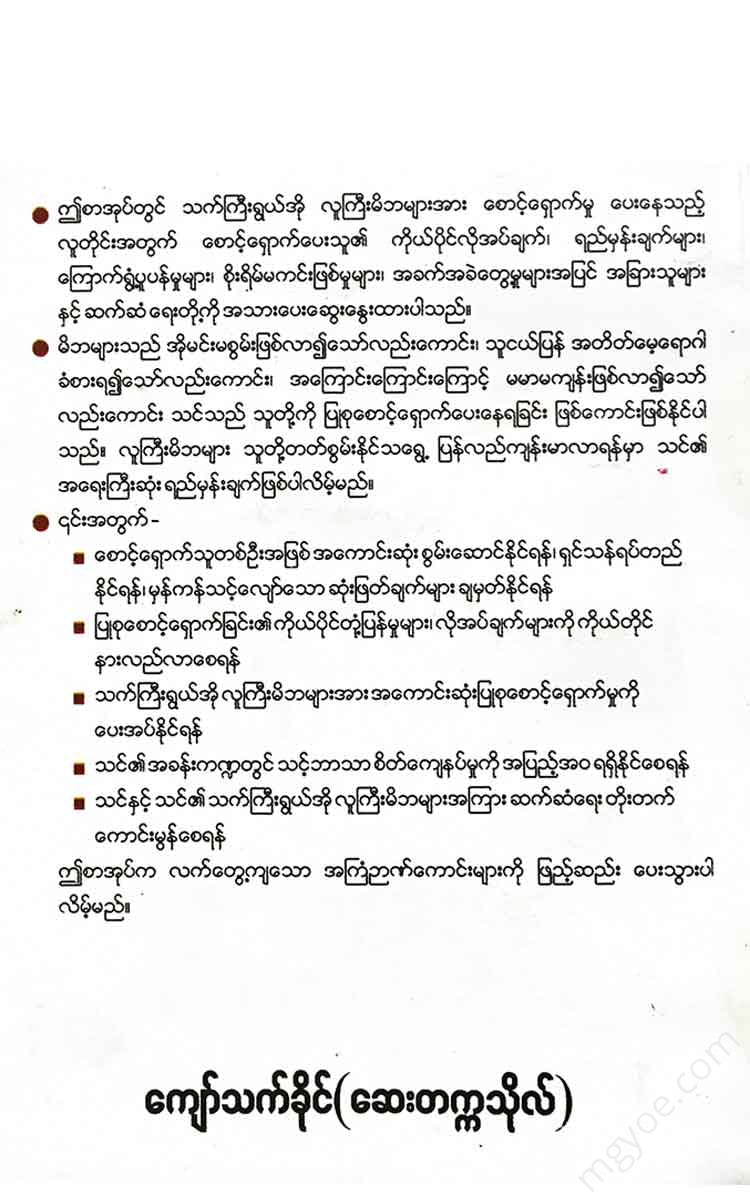 ● ဤစာအုပ်တွင် သက်ကြီးရွယ်အို လူကြီးမိဘများအား စောင့်ရှောက်မှု ပေးနေသည့်
လူတိုင်းအတွက် စောင့်ရှောက်ပေးသူ၏ ကိုယ်ပိုင်လိုအပ်ချက်၊ ရည်မှန်းချက်များ၊
ကြောက်ရွံ့ပူပန်မှုများ၊ စိုးရိမ်မကင်းဖြစ်မှုများ၊ အခက်အခဲတွေ့မှုများအပြင် အခြားသူများ
နှင့် ဆက်ဆံ ရေးတို့ကို အသားပေးဆွေးနွေးထားပါသည်။
● မိဘများသည် အိုမင်းမစွမ်းဖြစ်လာ၍သော်လည်းကောင်း၊ သူငယ်ပြန် အတိတ်မေ့ရောဂါ
ခံစားရ၍သော်လည်းကောင်း၊ အကြောင်းကြောင်းကြောင့် မမာမကျန်းဖြစ်လာ၍သော်
လည်းကောင်း သင်သည် သူတို့ကို ပြုစုစောင့်ရှောက်ပေးနေရခြင်း ဖြစ်ကောင်းဖြစ်နိုင်ပါ
သည်။ လူကြီးမိဘများ သူတို့တတ်စွမ်းနိုင်သရွေ့ ပြန်လည်ကျန်းမာလာရန်မှာ သင်၏
အရေးကြီးဆုံး ရည်မှန်းချက်ဖြစ်ပါလိမ့်မည်။
● ၎င်းအတွက် –
■ စောင့်ရှောက်သူတစ်ဦးအဖြစ် အကောင်းဆုံး စွမ်းဆောင်နိုင်ရန်၊ ရှင်သန်ရပ်တည်
နိုင်ရန်၊ မှန်ကန်သင့်လျော်သော ဆုံးဖြတ်ချက်များ ချမှတ်နိုင်ရန်
■ ပြုစုစောင့်ရှောက်ခြင်း၏ ကိုယ်ပိုင်တုံ့ပြန်မှုများ၊ လိုအပ်ချက်များကို ကိုယ်တိုင်
နားလည်လာစေရန်
■ သက်ကြီးရွယ်အို လူကြီးမိဘများအား အကောင်းဆုံးပြုစုစောင့်ရှောက်မှုကို
ပေးအပ်နိုင်ရန်
■ သင်၏ အခန်းကဏ္ဍတွင် သင့်ဘာသာ စိတ်ကျေနပ်မှုကို အပြည့်အဝ ရရှိနိုင်စေရန်
■ သင်နှင့် သင်၏ သက်ကြီးရွယ်အို လူကြီးမိဘများအကြား ဆက်ဆံရေး တိုးတက်
ကောင်းမွန်စေရန်
ဤစာအုပ်က လက်တွေ့ကျသော အကြံဉာဏ်ကောင်းများကို ဖြည့်ဆည်း ပေးသွားပါ
လိမ့်မည်။
ကျော်သက်ခိုင်(ဆေးတက္ကသိုလ်)
mgyoe.com